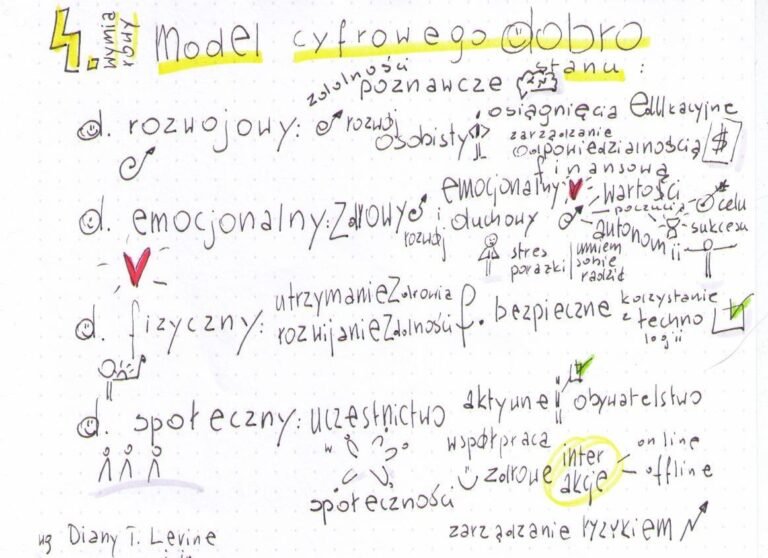 4. wymiarowy Model cyfrowego dobrostanu:
d. rozwojowy: rozwój osobisty
zdolności poznawcze
osiągnięcia edukacyjne
zarządzanie odpowiedzialnością finansową $
d. emocjonalny: Zdrowy rozwój emocjonalny i duchowy
wartości
poczucia celu
autonomii sukcesu
stres porażki
umiem sobie radzić
d. fizyczny: utrzymanie Zdrowia
rozwijanie Zdolności f.
bezpieczne korzystanie z technologii
d. społeczny: uczestnictwo
w
społeczności
aktywne obywatelstwo
współpraca
zdrowe interakcje
online
offline
zarządzanie ryzykiem
wg Diany T. Levine